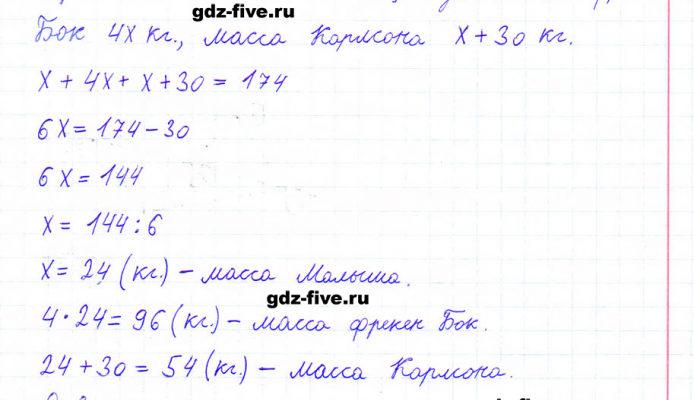 gdz-five.ru
Бок 4х кг., масса Карлсона х + 30 кг.
х + 4х + х + 30 = 174
6х = 174 - 30
6х = 144
х = 144 : 6
х = 24 (кг.) - масса Малыша.
gdz-five.ru
4 · 24 = 96 (кг.) - масса фрекен Бок.
24 + 30 = 54 (кг.) - масса Карлсона.